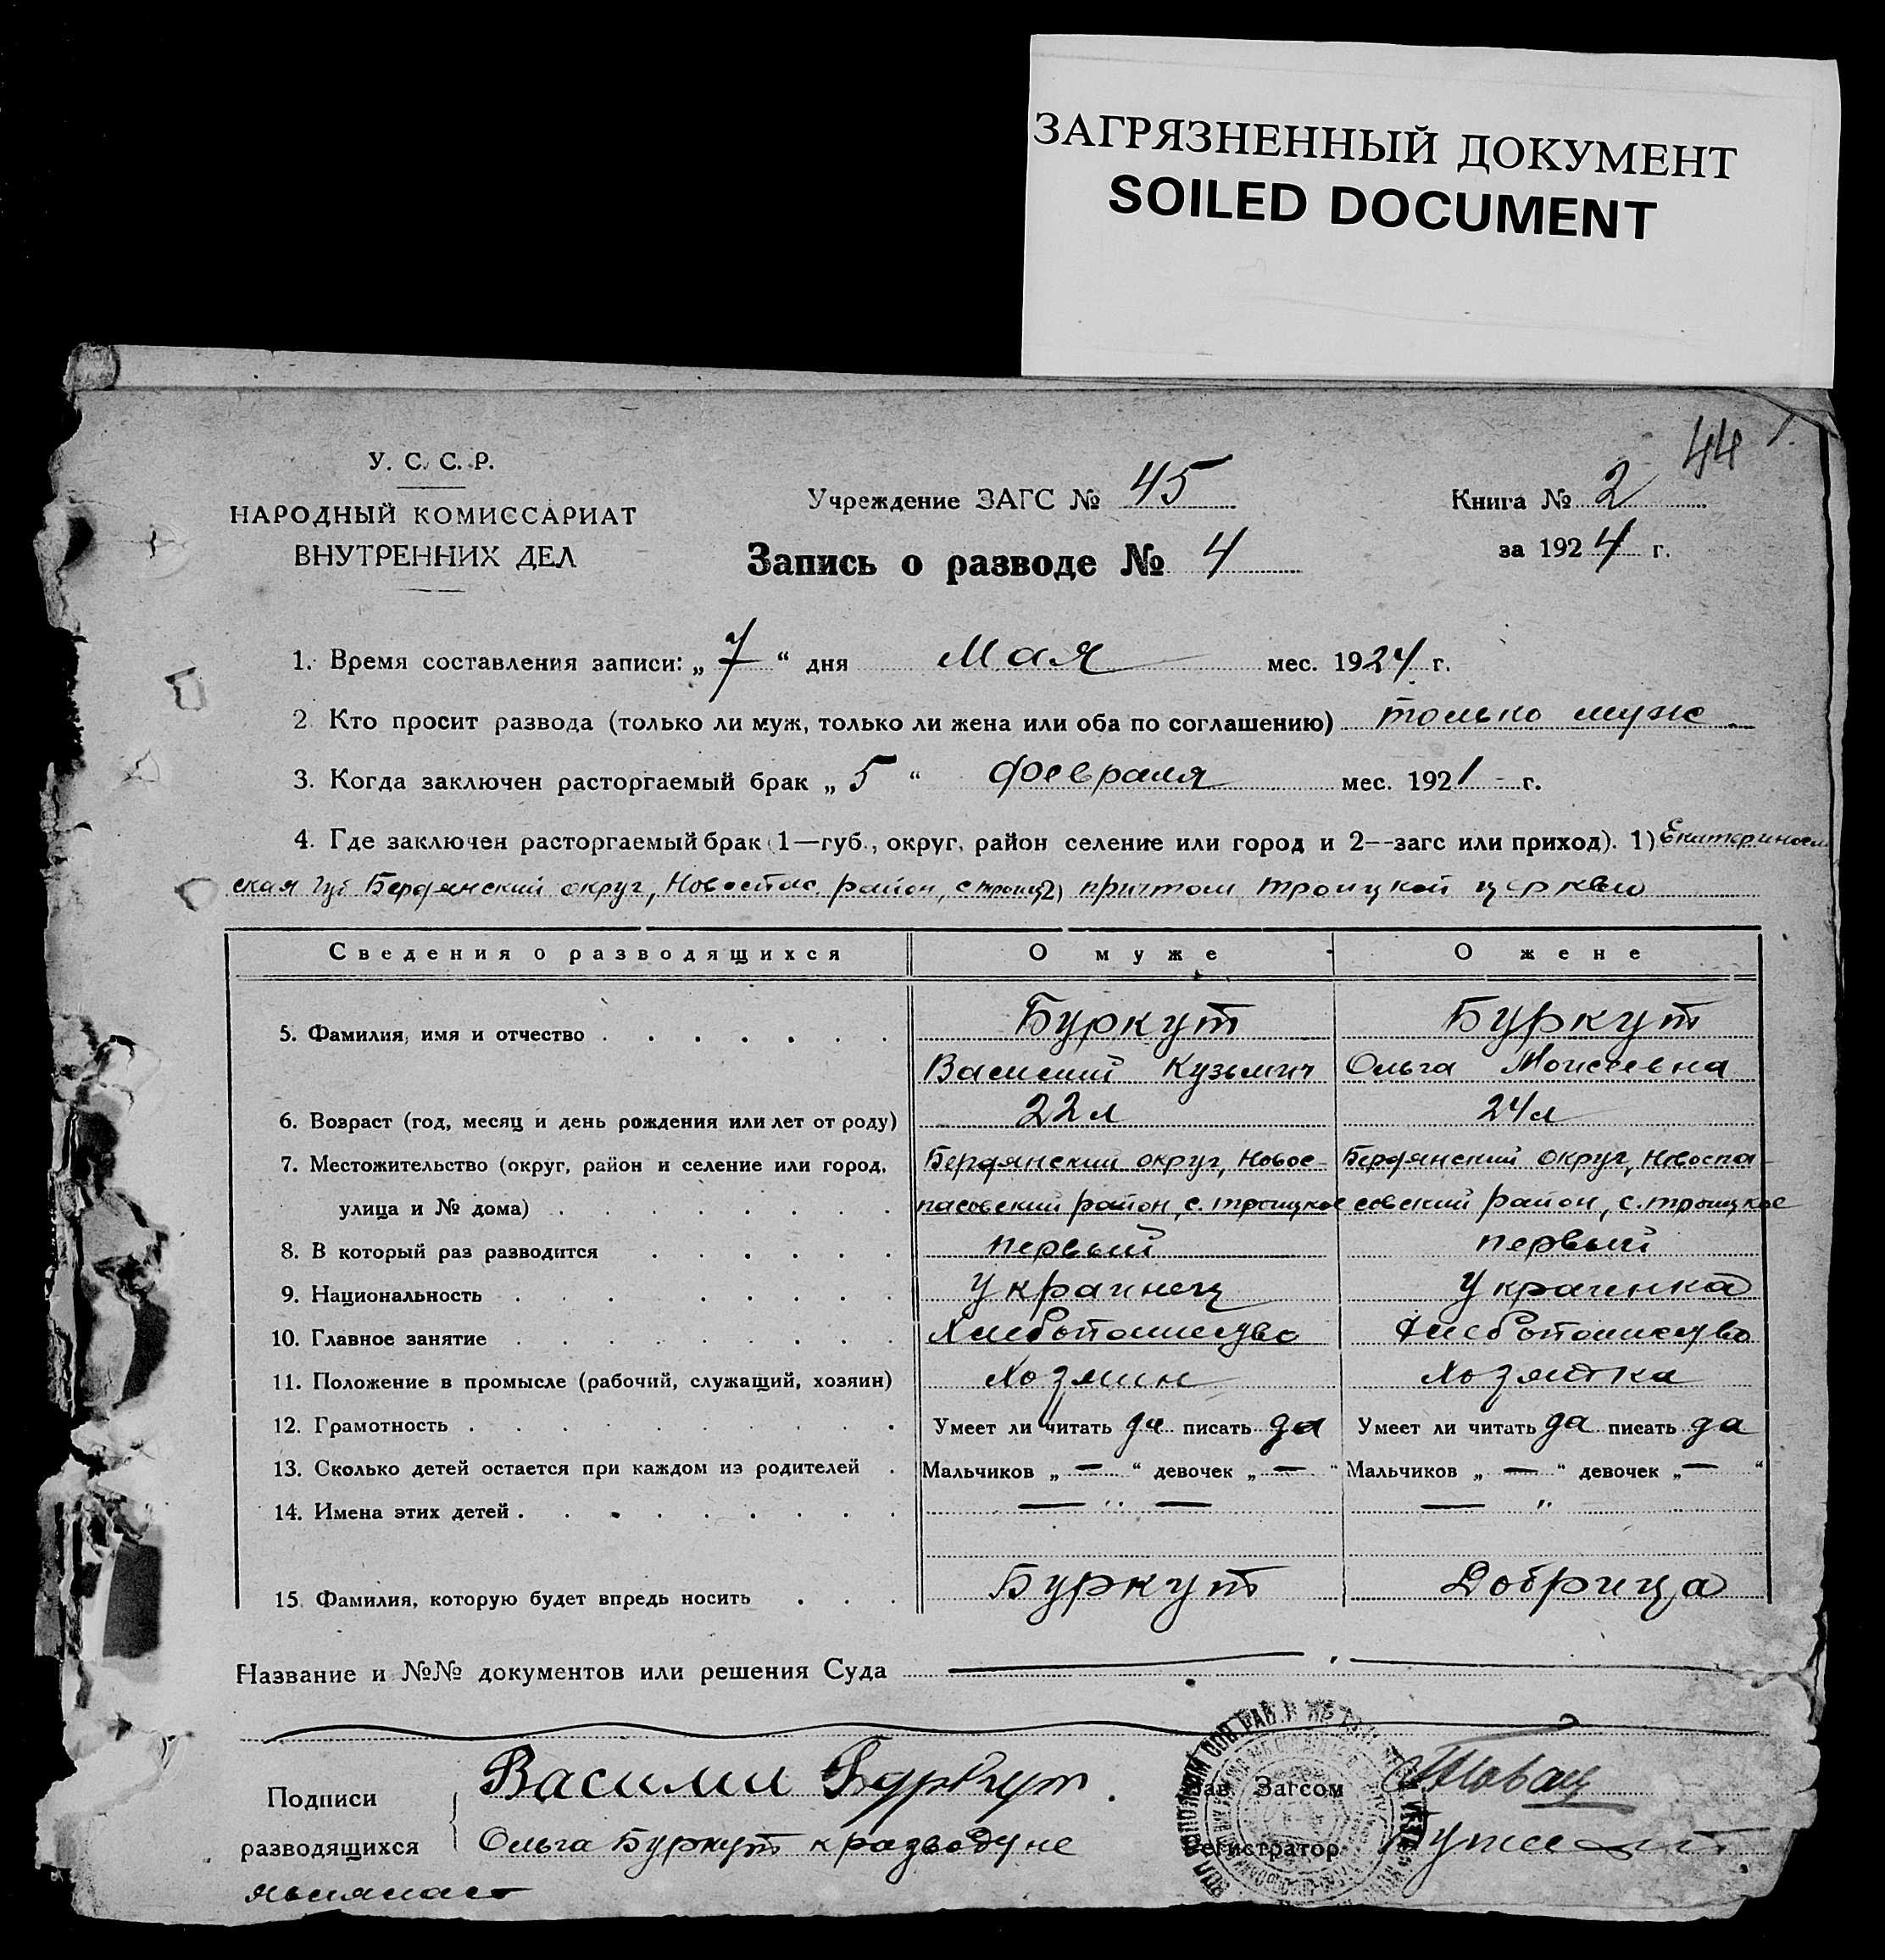 ЗАГРЯЗНЕННЫЙ ДОКУМЕНТ
SOILED DOCUMENT
44
У. С. С. Р.
НАРОДНЫЙ КОМИССАРИАТ
ВНУТРЕННИХ ДЕЛ
Учреждение ЗАГС № 45
Книга № 2
за 1924 г.
Запись о разводе № 4
1. Время составления записи: „7“ дня Мая мес. 1924 г.
2. Кто просит развода (только ли муж, только ли жена или оба по соглашению) только муж
3. Когда заключен расторгаемый брак „5“ февраля мес. 1921 г.
4. Где заключен расторгаемый брак (1—губ., округ, район селение или город и 2—загс или приход). 1) Екатеринослав
ская губ Бердянский округ, Новоспас. район, с троиц 2) причтом троицкой церквы
Сведения о разводящихся О муже О жене
5. Фамилия, имя и отчество Буркут Буркут
Василий Кузьмич Ольга Моисеевна
6. Возраст (год, месяц и день рождения или лет от роду) 22 л 24 л
7. Местожительство (округ, район и селение или город, Бердянский округ, Новос- Бердянский округ, Новоспа-
улица и № дома) пасовский район, с. троицкое совский район, с. троицкое
8. В который раз разводится первый первый
9. Национальность Украинец Украинка
10. Главное занятие Хлебопашество Хлебопашество
11. Положение в промысле (рабочий, служащий, хозяин) Хозяин Хозяйка
12. Грамотность Умеет ли читать да писать да Умеет ли читать да писать да
13. Сколько детей остается при каждом из родителей Мальчиков „—“ девочек „—“ Мальчиков „—“ девочек „—“
14. Имена этих детей — „ — — „
15. Фамилия, которую будет впредь носить Буркут Добрица
Название и №№ документов или решения Суда
Подписи
разводящихся
Василий Буркут.
Ольга Буркут к разводу не
являлась
Зав. Загсом
Регистратор